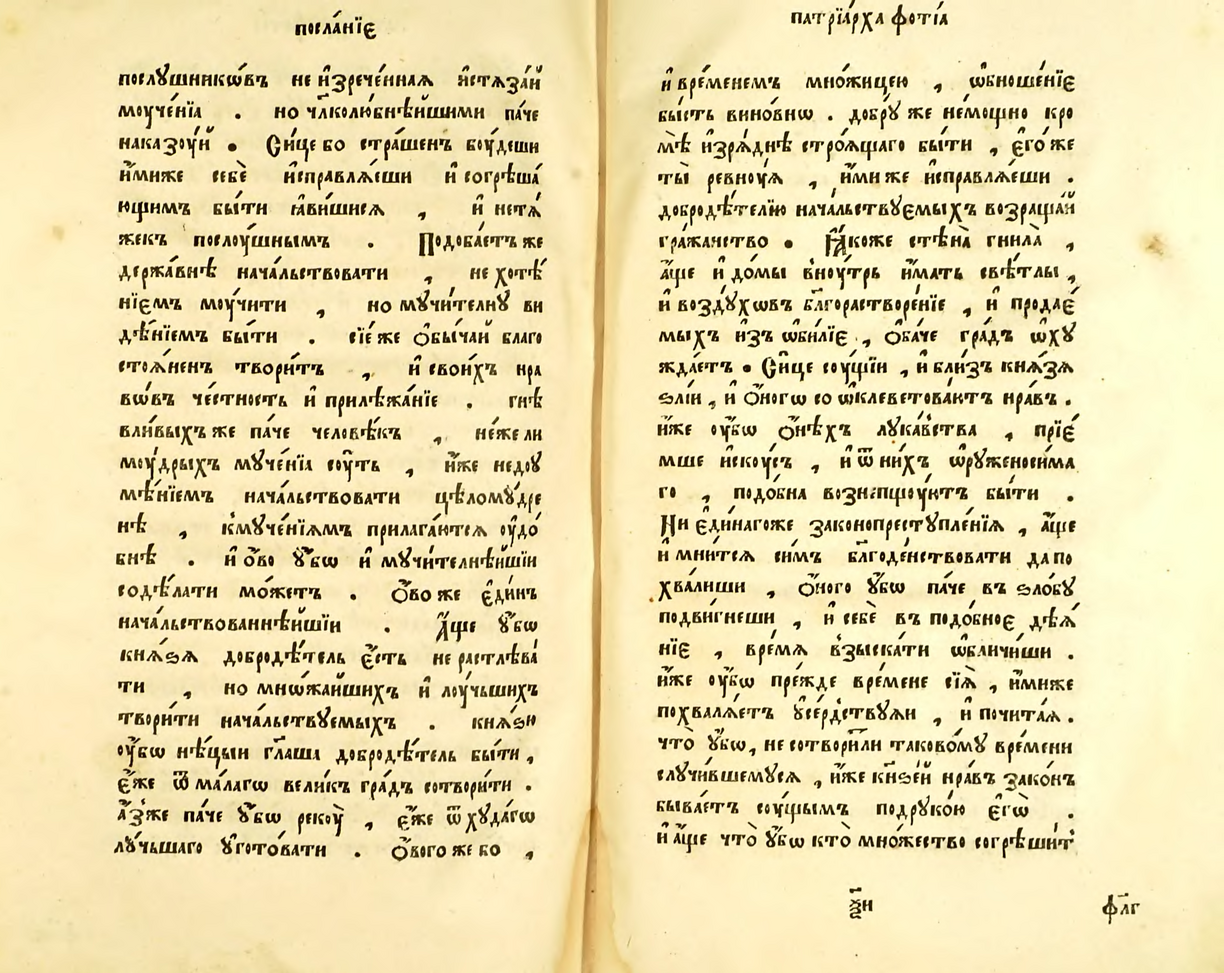 посла́нїе
послꙋшникѡвъ не и҆зрече́ннаѧ и҆стѧза́й
моуче́нїа . но чл҃колюбнѣ́йшими па́че
наказоу́й . Си́це бо стра́шенъ боу́деши
и҆́миже себѐ и҆справлѧ́еши и҆ согрѣша́
ющимъ бы́ти ꙗ҆ви́шисѧ , и҆ нетѧ́
жекъ послоу́шнымъ . Подоба́етъ же
держа́внѣ нача́льствовати , не хотѣ́
нїемъ моучити , но мꙋчи́телнꙋ ви
дѣ́нїемъ бы́ти . сїе́ же ѻ҆бы́чай благо
стоѧ́ненъ твори́тъ , и҆ свои́хъ нра
вѡ́въ че́стность и҆ прилѣжа́нїе . гнѣ
вли́выхъ же па́че человѣ́къ , не́же ли
моу́дрыхъ мꙋче́нїа соу́ть , и҆́же недоу
мѣ́нїемъ нача́льствовати цѣломꙋ́дре
нѣ , к̾мꙋче́нїѧмъ прилага́ютсѧ оу҆до́
бнѣ . и҆ ѻ҆́во ᲂу҆́бѡ и҆ мꙋчи́телнѣйшїи
содѣ́лати мо́жетъ . Ѻ҆́во же є҆ди́нъ
нача́льствованнѣйшїи . А҆́ще ᲂу҆́бѡ
кнѧ́ѕѧ добродѣ́тель є҆́сть не растлѣва́
ти , но мнѡжа́йшихъ и҆ лоу́чьшихъ
твори́ти нача́льствꙋемыхъ . кнѧ́ѕи
оу҆́бѡ нѣ́цыи гл҃аша добродѣ́тель бы́ти ,
є҆́же ѿ ма́лагѡ вели́къ гра́дъ сотвори́ти .
а҆́зже па́че ᲂу҆́бѡ рекоу̀ , є҆́же ѿ хꙋда́гѡ
лꙋ́чьшаго ᲂу҆гото́вати . Ѻ҆́вого же бо ,
патрїа́рха фо́тїа
и҆ вре́менемъ мно́жицею , ѡ҆бноше́нїе
бы́сть вино́внѡ . добрꙋ́ же немо́щно кро
мѣ̀ и҆зрѧ́днѣ строѧ́щаго бы́ти , є҆го́ же
ты̀ ревноу́ѧ , и҆́ми же и҆справлѧ́еши .
добродѣ́телїю нача́льствꙋемыхъ возраща́й
гра́жанство . Ꙗ҆́коже стѣна̀ гнила̀ ,
а҆́ще и҆ до́мы в̾ноу́трь и҆́мать свѣ́тлы ,
и҆ во́здꙋхѡвъ бл҃горастворе́нїе , и҆ продае́
мыхъ и҆зъ ѡ҆би́лїе , ѻ҆ба́че гра́дъ ѡ҆хꙋ
жда́етъ . Си́це соу́щїи , и҆ бли́зъ кнѧ́зѧ
ѕлі́и , и҆ ѻ҆́ногѡ со ѡ҆клеветова́ютъ нра́въ .
и҆́же оу҆́бѡ ѻ҆́нѣхъ лꙋка́вства , прїе́
мше и҆скоу́съ , и҆ ѿ ни́хъ ѡ҆рꙋженоси́ма
го , подо́бна возне́пщоуютъ бы́ти .
Ни є҆ди́нагоже законопрестꙋпле́нїѧ , а҆́ще
и҆ мни́тсѧ си́мъ бл҃годе́нствовати да по
хва́лиши , ѻ҆́ного ᲂу҆́бѡ па́че въ ѕло́бꙋ
подви́гнеши , и҆ себѐ въ подо́бное дѣѧ́
нїе , вре́мѧ в̾зыска́ти ѡ҆бличи́ши .
и҆́же оу҆́бѡ пре́жде вре́мене сїѧ̀ , и҆́миже
похвалѧ́етъ ᲂу҆се́рдствꙋѧи , и҆ почита́ѧ .
что̀ ᲂу҆́бѡ , не сотвори́ли тако́вомꙋ вре́мени
слꙋчи́вшемꙋсѧ , и҆́же кн҃ѕей нра́въ зако́нъ
быва́етъ соу́щымъ подрꙋко́ю є҆гѡ̀ .
и҆ а҆́ще что̀ ᲂу҆́бѡ кто̀ мно́жество согрѣши́тъ
фл҃г